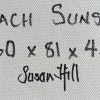 ACH SUNS
0 x 81 x 4
Susan Hill